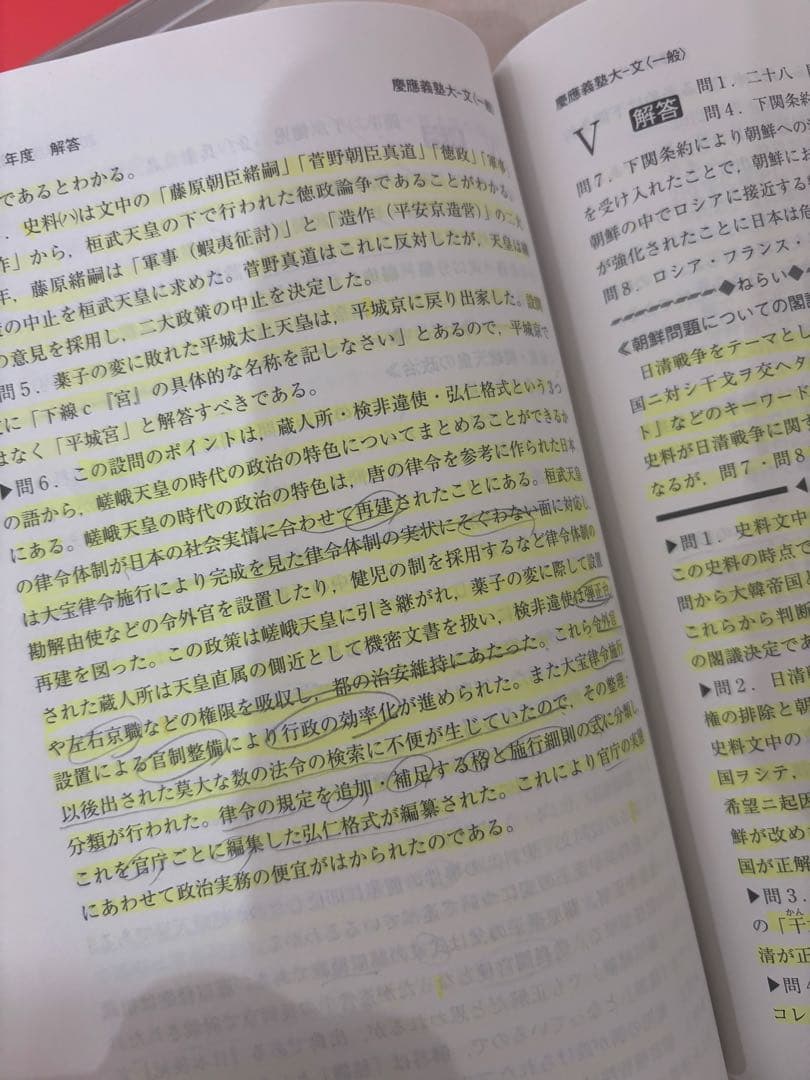 年度 解答
慶應義塾大-文〈一般〉
であるとわかる。
史料(ハ)は文中の「藤原朝臣緒嗣」「菅野朝臣真道」「徳政」「軍事」
作」から，桓武天皇の下で行われた徳政論争であることがわかる。
年，藤原緒嗣は「軍事（蝦夷征討）」と「造作（平安京造営）」の二大
の中止を桓武天皇に求めた。菅野真道はこれに反対したが，天皇は緒
の意見を採用し，二大政策の中止を決定した。
問5．薬子の変に敗れた平城太上天皇は，平城京に戻り出家した。設問
に「下線c『宮』の具体的な名称を記しなさい」とあるので，平城京で
はなく「平城宮」と解答すべきである。
▶問6．この設問のポイントは，蔵人所・検非違使・弘仁格式という3つ
の語から，嵯峨天皇の時代の政治の特色についてまとめることができるか
にある。嵯峨天皇の時代の政治の特色は，唐の律令を参考に作られた日本
の律令体制が日本の社会実情に合わせて再建されたことにある。桓武天皇
は大宝律令施行により完成を見た律令体制の実状にそぐわない面に対応し，
勘解由使などの令外官を設置したり，健児の制を採用するなど律令体制の
再建を図った。この政策は嵯峨天皇に引き継がれ，薬子の変に際して設置
された蔵人所は天皇直属の側近として機密文書を扱い，検非違使は弾正台
や左右京職などの権限を吸収し，都の治安維持にあたった。これら令外官
設置による官制整備により行政の効率化が進められた。また大宝律令施行
以後出された莫大な数の法令の検索に不便が生じていたので，その整理・
分類が行われた。律令の規定を追加・補足する格と施行細則の式に分類し，
これを官庁ごとに編集した弘仁格式が編纂された。これにより官庁の実情
にあわせて政治実務の便宜がはかられたのである。
慶應義塾大-文〈一般〉
V 解答 問1．二十八
問4．下関条約
問7．下関条約により朝鮮への
を受け入れたことで，朝鮮にお
朝鮮の中でロシアに接近する
が強化されたことに日本は危
問8．ロシア・フランス・
◆ねらい◆
≪朝鮮問題についての閣
日清戦争をテーマとし
国ニ対シ干戈ヲ交ヘタ
ト」などのキーワード
史料が日清戦争に関す
なるが，問7・問8
▶問1．史料文中
この史料の時点で
問から大韓帝国
これらから判断
の閣議決定であ
▶問2．日清
権の排除と朝
史料文中の
国ヲシテ，
希望ニ起因
鮮が改め
国が正解
▶問3．
の「干
かん
清が正
▶問4
コレ